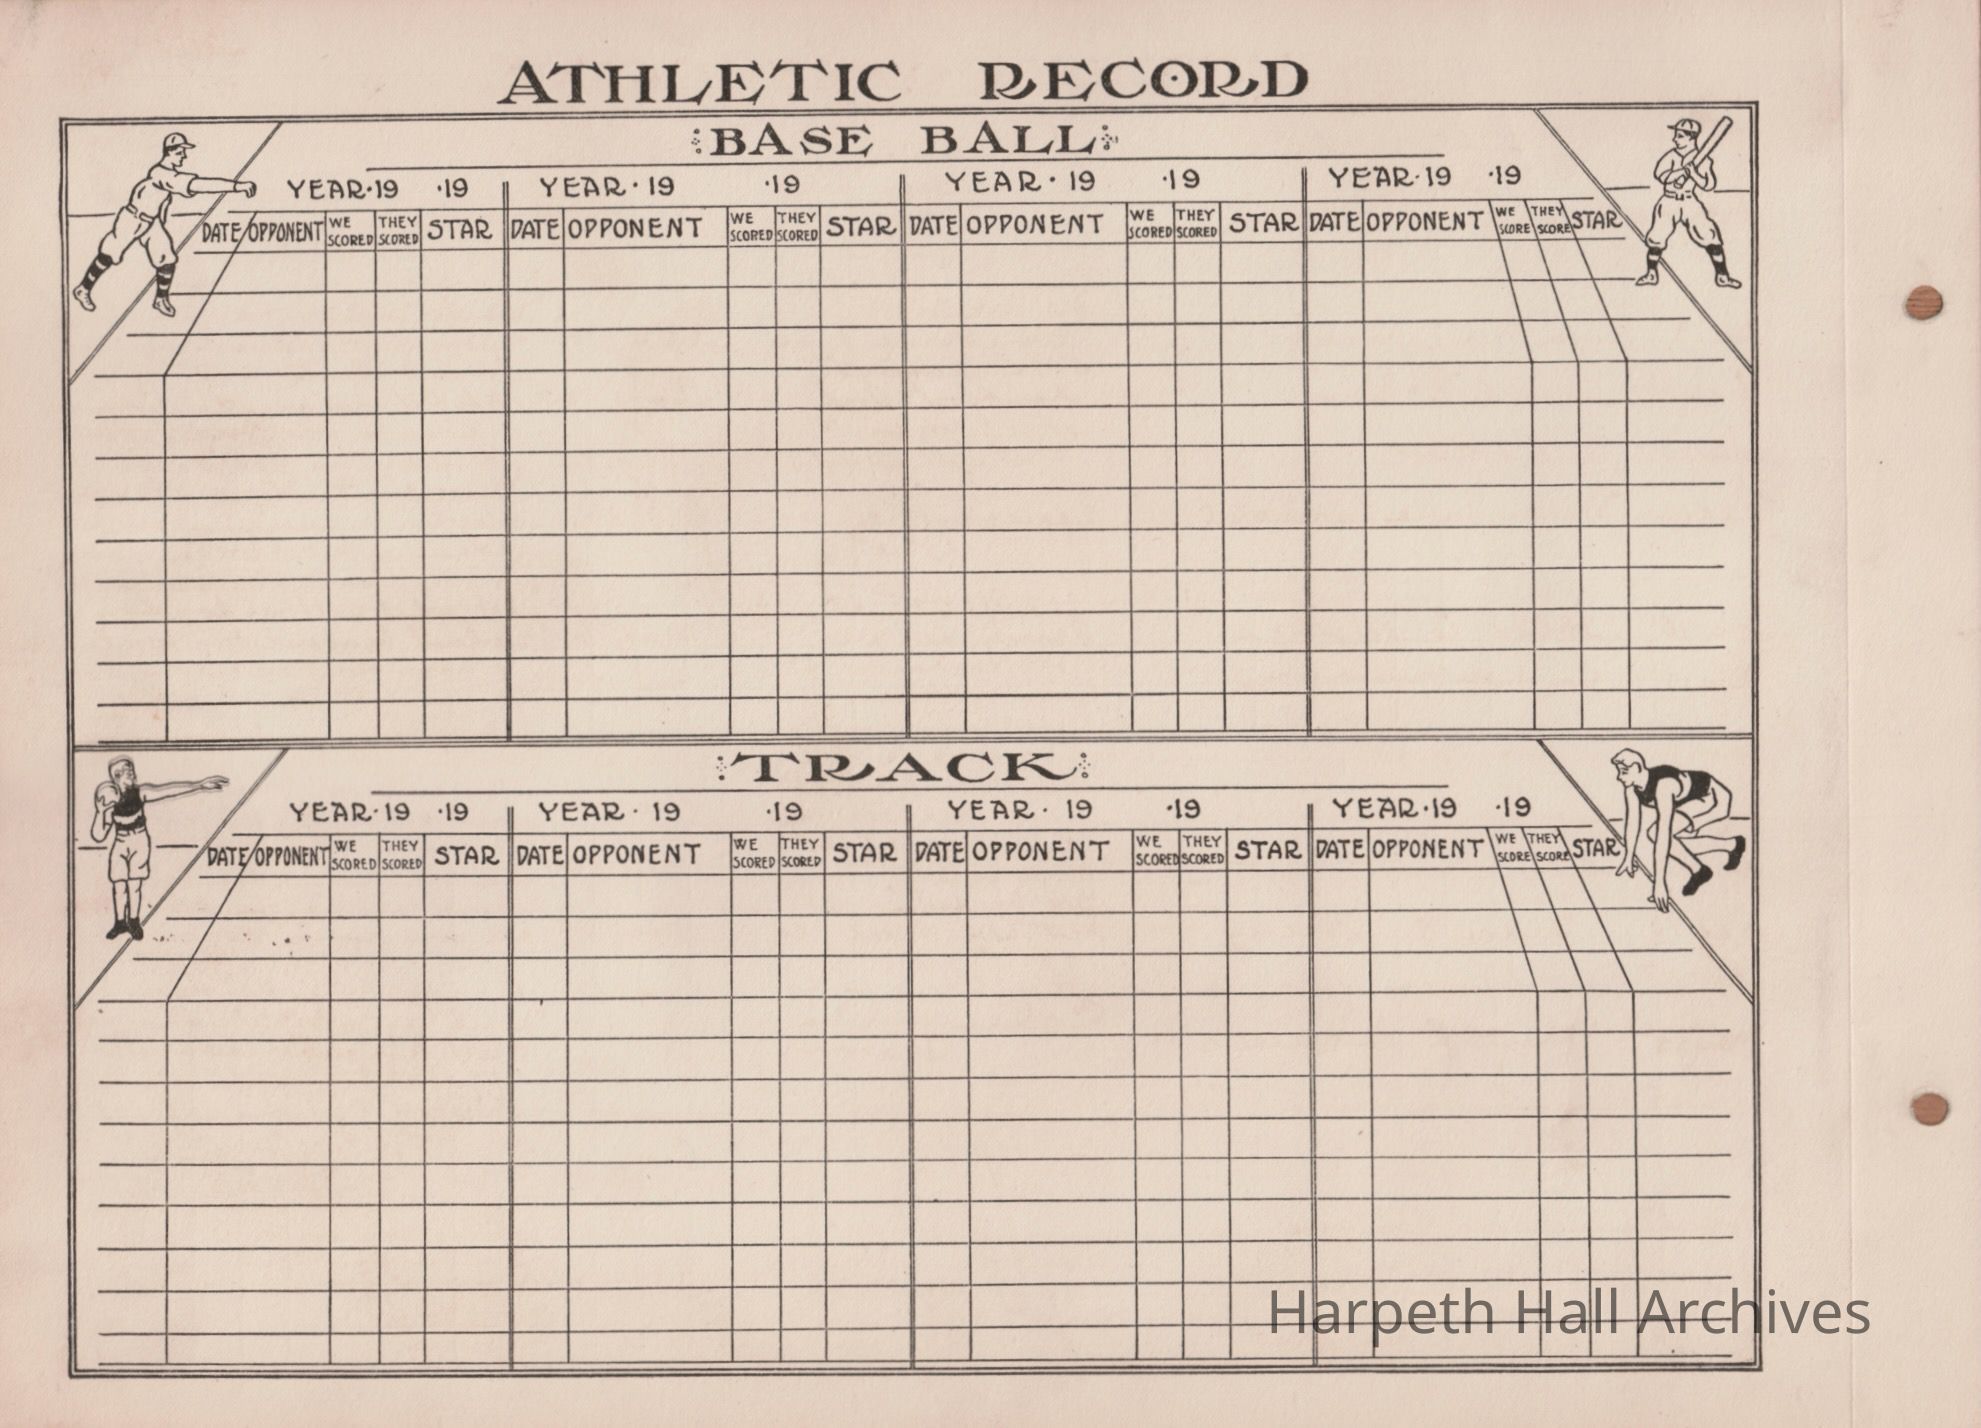 ATHLETIC RECORD
BASE BALL
YEAR·19 ·19 YEAR·19 ·19 YEAR·19 ·19 YEAR·19 ·19
DATE OPPONENT WE SCORED THEY SCORED STAR DATE OPPONENT WE SCORED THEY SCORED STAR DATE OPPONENT WE SCORED THEY SCORED STAR DATE OPPONENT WE SCORE THEY SCORE STAR
TRACK
YEAR·19 ·19 YEAR·19 ·19 YEAR·19 ·19 YEAR·19 ·19
DATE OPPONENT WE SCORED THEY SCORED STAR DATE OPPONENT WE SCORED THEY SCORED STAR DATE OPPONENT WE SCORED THEY SCORED STAR DATE OPPONENT WE SCORE THEY SCORE STAR
Harpeth Hall Archives